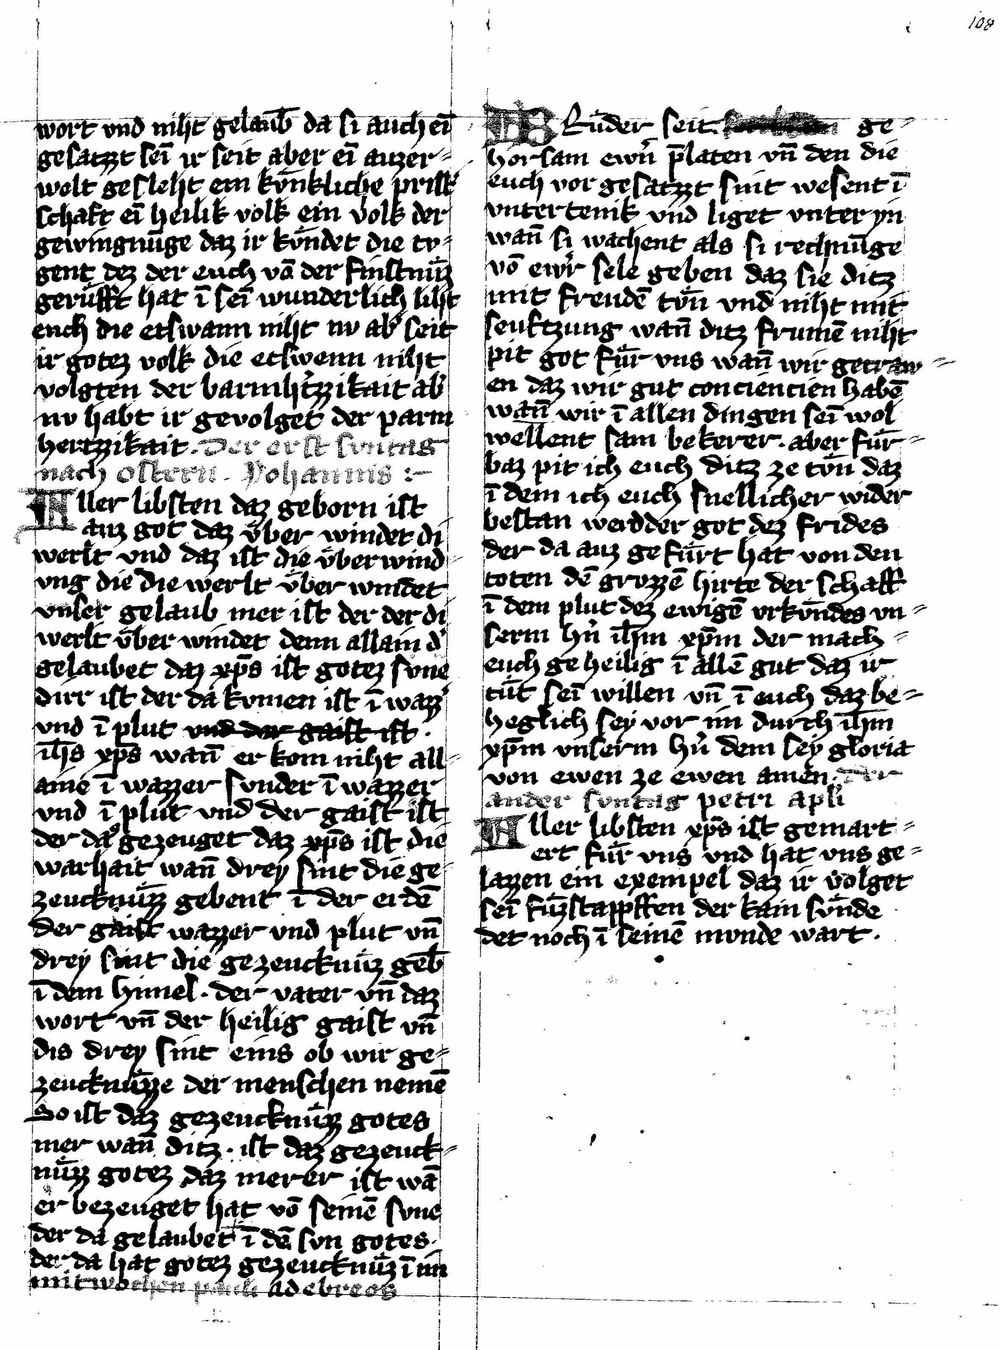 108
wort vnd niht gelaub̄ da si auch eī
gesatzzt sei ir seit aber eī auzer⸗
welt gesleht ein kv̈nkliche prist͛
schaft eī heilik volk ein volk der
gewingnūge daz ir kv̈ndet die tv⸗
gent dez der euch vā der finstnüzz
gerüfft hat ī sei wunderlich liht
euch die etswann niht nv ab͛ seit
ir gotez volk die etswenn niht
volgten der barmh͛tzzikait ab͛
nv habt ir gevolget der parm
hertzzikait. Der erst svntag
nach ostern. Johannis :~
Aller libsten daz geborn ist
auz got daz v̈ber windet di
werlt vnd daz ist die v̈berwind⸗
vng die die werlt v̈ber windet
vnser gelaub wer ist der der di
werlt v̈ber windet denn allain d͛
gelaubet daz xp̄s ist gotez svne
dirr ist der da kvmen ist ī wazz͛
vnd ī plut vnd der gaist ist.
ih̄s xp̄s wan̄ er kom niht all⸗
aine ī wazzer svnder ī wazzer
vnd ī plut vnd der gaist ist
der da gezeuget daz xp̄s ist die
warhait wan̄ drey sint die ge⸗
zeucknüzz gebent ī der erdē
der gaist wazzer vnd plut vn̄
drey sint die gezeucknüz geb̄
ī dem himel. der vater vn̄ daz
wort vn̄ der heilig gaist vn̄
dis drey sint eins ob wir ge⸗
zeucknüzze der menschen nemē
So ist daz gezeucknüzz gotes
mer wan̄ ditz. ist daz gezeuck⸗
nüzz gotez daz merer ist wā
er bezeuget hat vō seinē svne
der da gelaubet ī dē svn gotes.
der da hat gotez gezeucknüz ī im
mitwochen pauli ad ebreos
BRüder seit ge⸗
horsam ewrn̄ p̄laten vn̄ den die
euch vor gesatzzt sint wesent ī
vntertenik vnd liget vnter yn
wan̄ si wachent als si rechnūge
vō ewr͛ sele geben daz sie ditz
mit freudē tv̈n vnd niht mit
seuftzung wan̄ ditz frumē niht
pit got für vns wan̄ wir getraw⸗
en daz wir gut conciencien habē
wan̄ wir ī allen dingen sei wol
wellent sam bekerer. aber für⸗
baz pit ich euch ditz ze tv̈n daz
ī dem ich euch snellicher wider
bestan werd der got dez frides
der da auz gefürt hat von den
toten dē grozzē hirte der schaff
ī dem plut dez ewigē vrkv̈ndes vn⸗
serm hr̄n ih̄m xp̄m der mach⸗
euch geheilig ī allē gut daz ir
tüt sei willen vn̄ ī euch daz be⸗
heglich sey vor im durch ih̄m
xp̄m vnserm hr̄n dem sey gloria
von ewen ze ewen amen. Der
ander svntag petri ap̄li
Aller libsten xp̄s ist gemart⸗
ert für vns vnd hat vns ge⸗
lazzen ein exempel daz ir volget
sei fuzstappffen der kain svnde
det noch ī seinē munde wart.